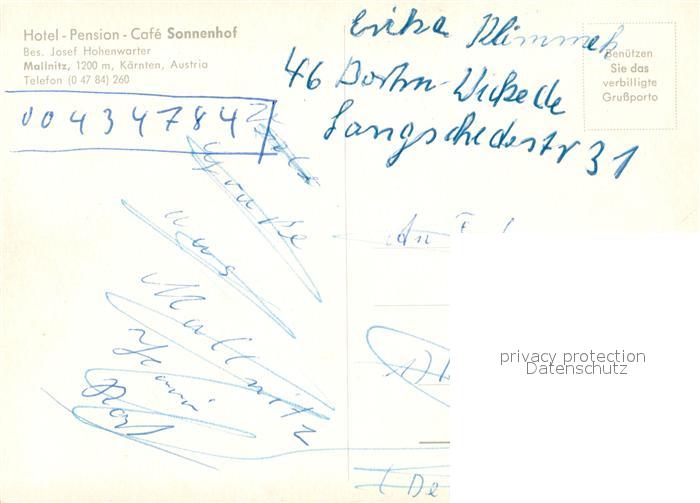 Hotel - Pension - Café Sonnenhof
Bes. Josef Hohenwarter
Mallnitz, 1200 m, Kärnten, Austria
Telefon (0 47 84) 260
Erika Klimmek
46 Dortm-Wickede
Langschedestr 31
Benützen
Sie das
verbilligte
Grußporto
0043 4784
Grüße
aus
Mallnitz
An
privacy protection
Datenschutz
(De